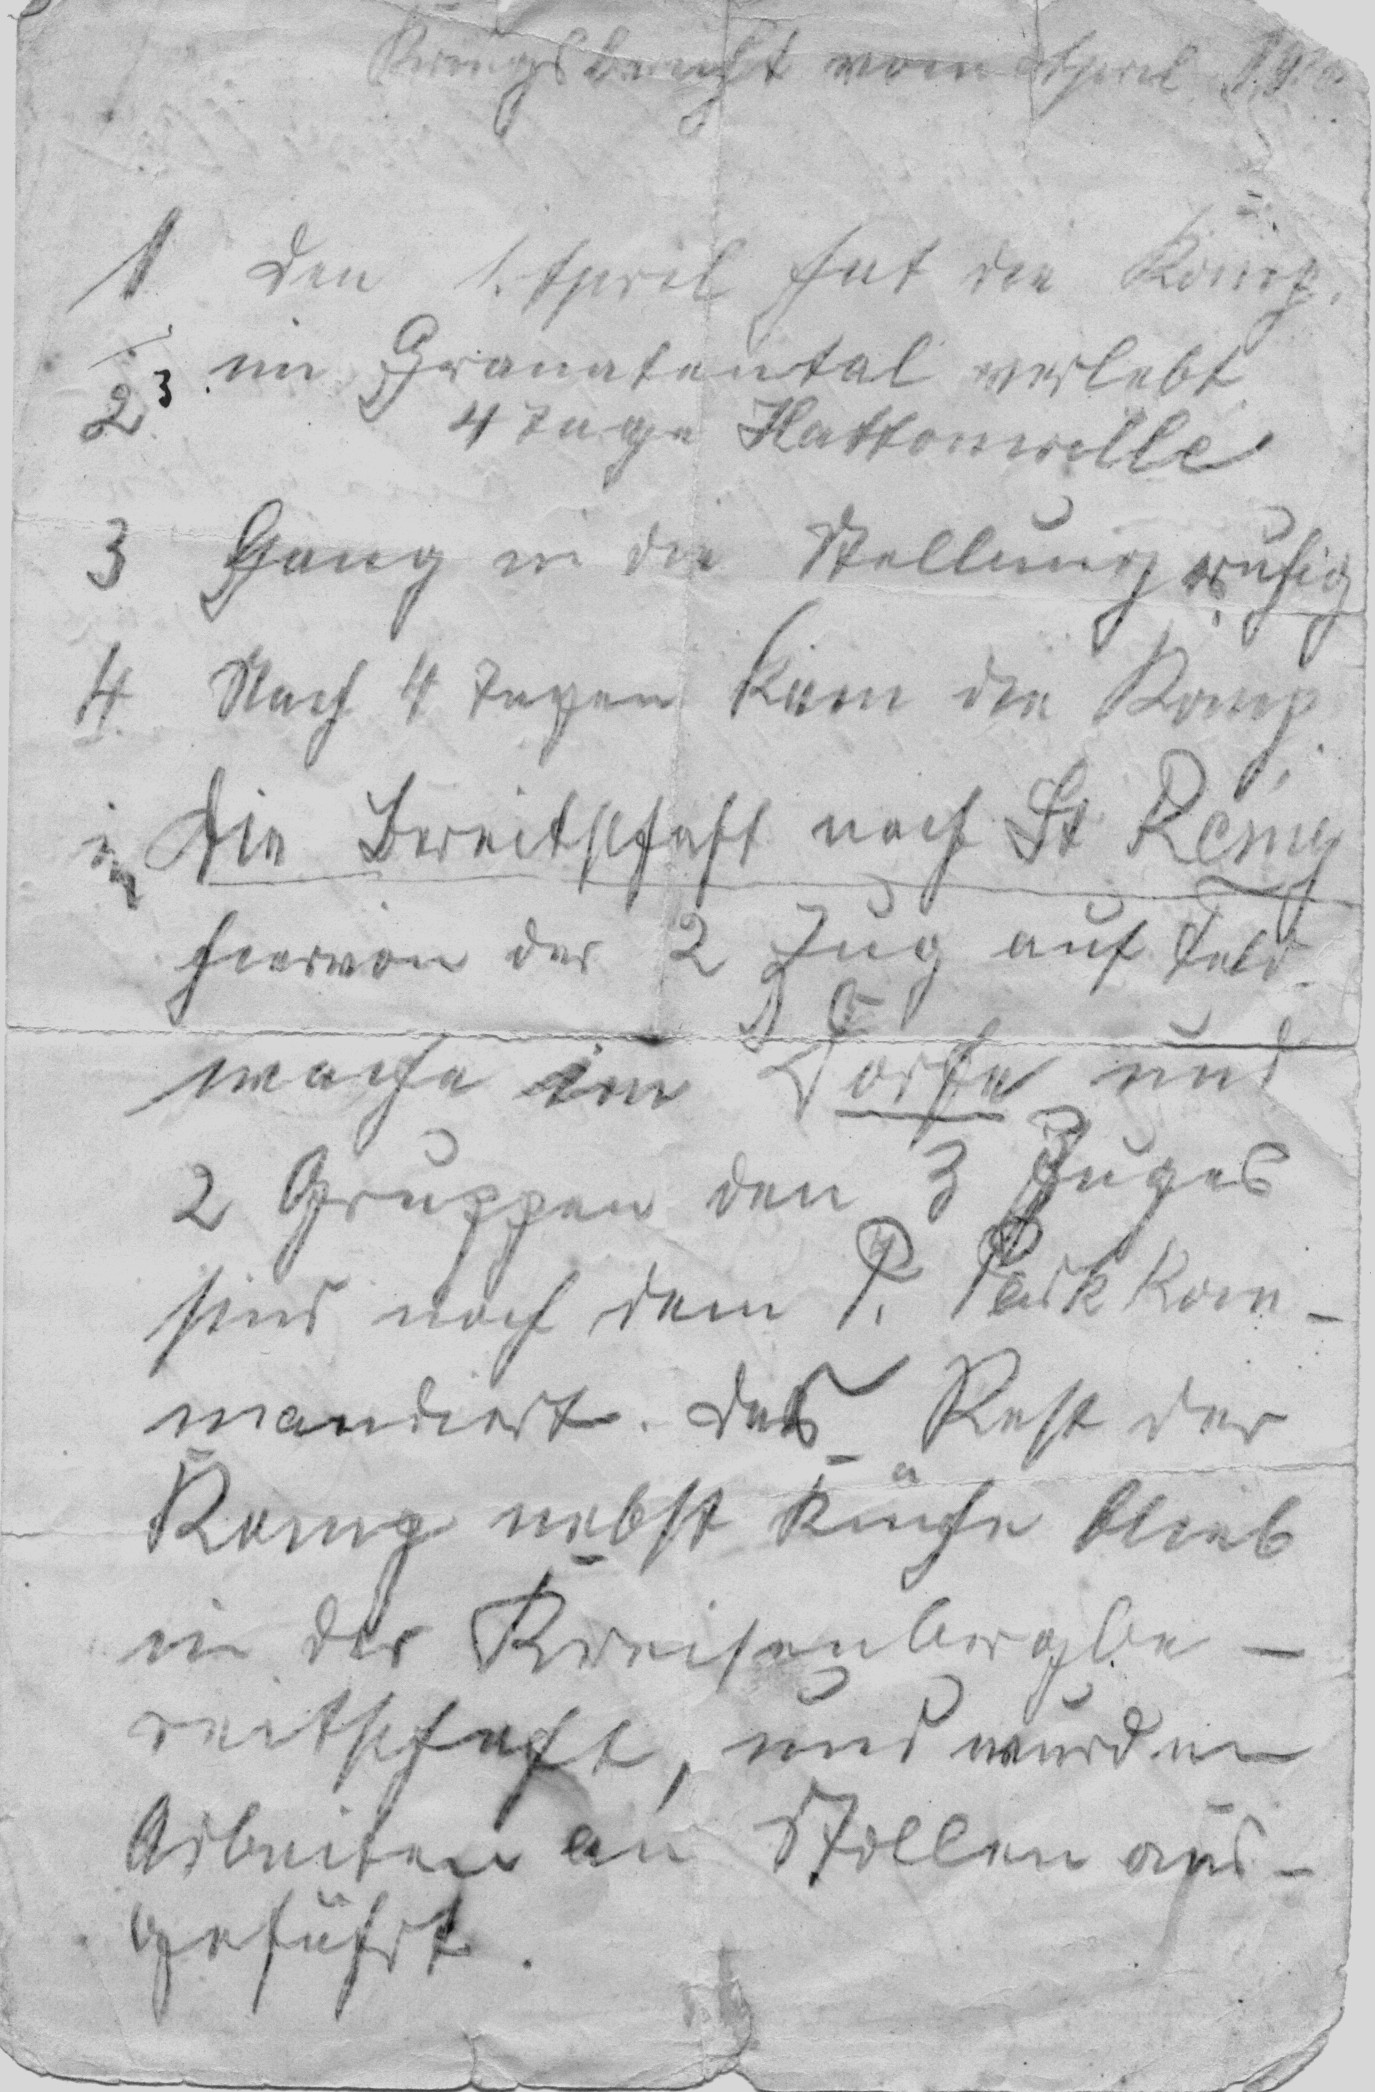 Kriegsbericht vom April
1 Den 1. April hat die Komp.
im Granatental verlebt
2 3 4 Tage Hattonville
3 Gang in die Stellung ruhig
4. Nach 4 Tagen kam die Komp.
in Die Bereitschaft nach St Remy
hiervon der 2 Zug auf Feld-
wache im Dorfe und
2 Gruppen den 3 Zuges
sind nach dem P. Park kom-
mandiert. Der Rest der
Komp nebst Küche blieb
in der Kreisenbergbe-
reitschaft, und wurden
Arbeiten an Stollen aus-
geführt.